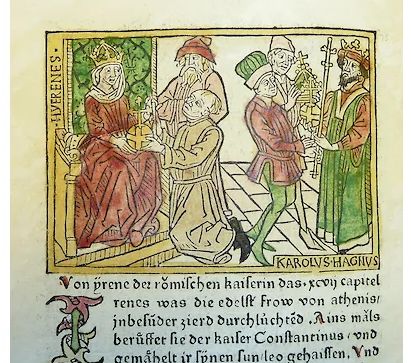 HYERENES
KAROLVS·MAGNVS
Von ẏrene der rőmischen kaiserin das .xcvij capitel
Irenes was die edelst frow von athenis/
jnbesůder zierd durchlúchtēd. Ains māls
berüffet sie der kaiser Constantinus/ vnd
gemåhelt ir sẏnen sun/leo gehaissen. Vnd